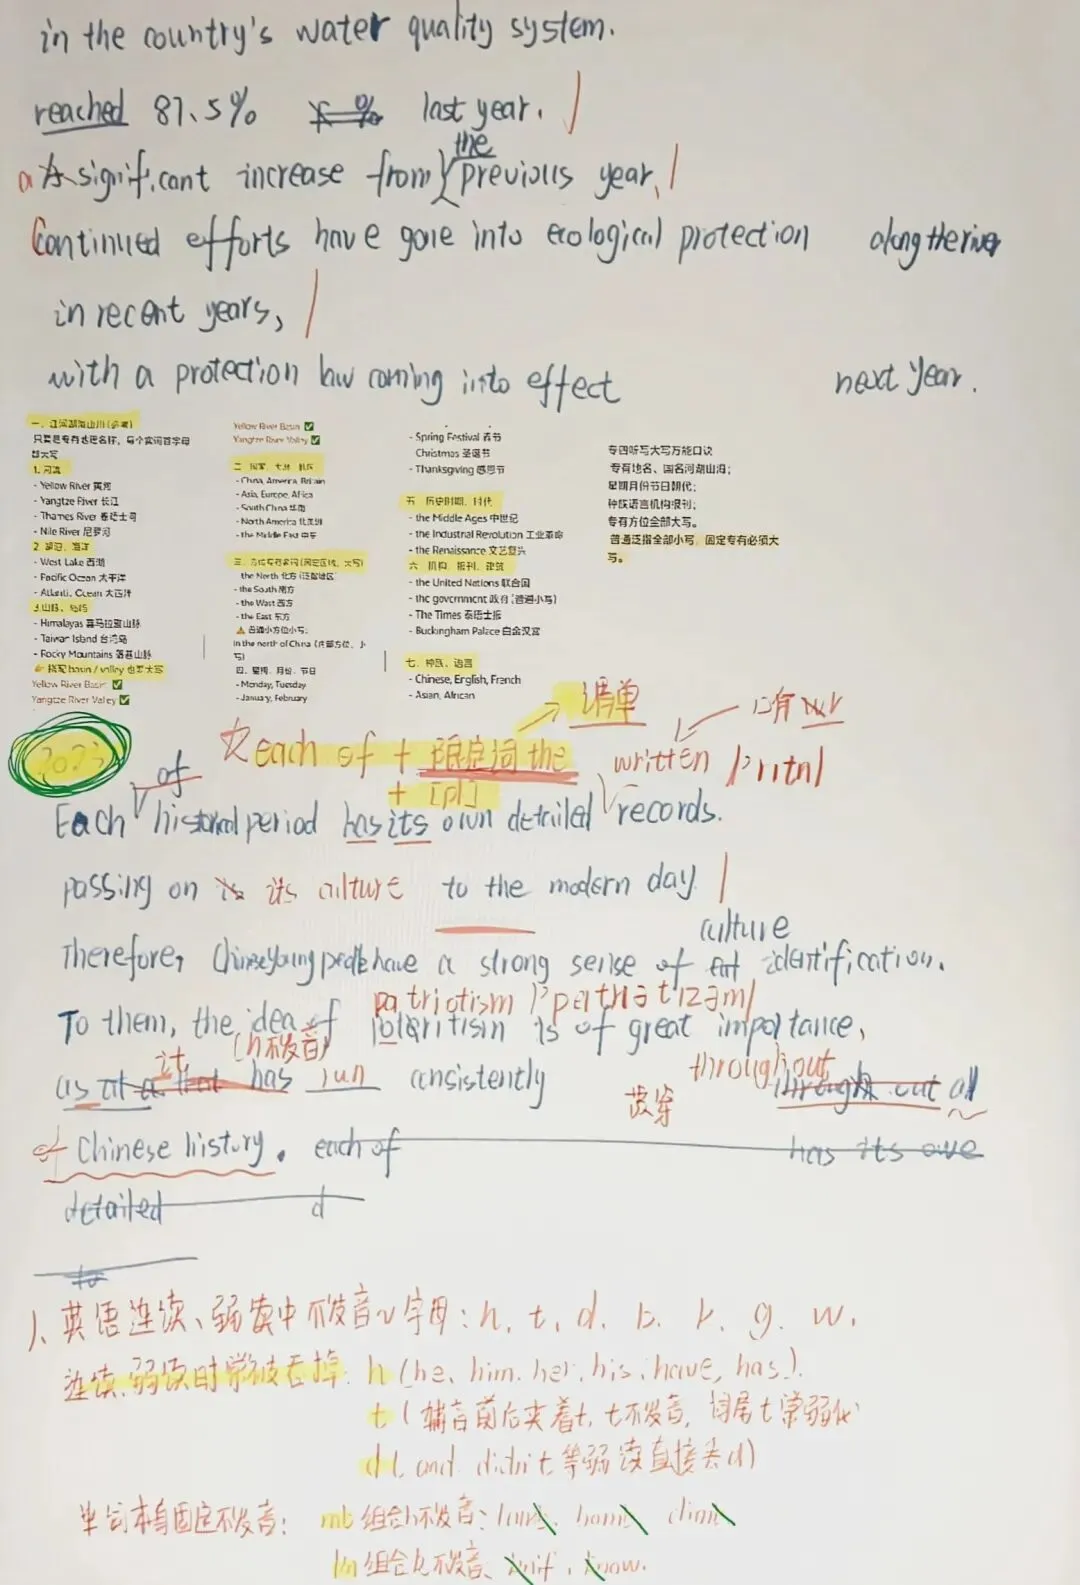 in the country's water quality system.
reached 87.5% % last year.
a significant increase from the previous year.
Continued efforts have gone into ecological protection along the river
in recent years,
with a protection law coming into effect next year.
一、江河湖海山川(必考)
只要是专有地理名称，每个实词首字母都大写
1. 河流
- Yellow River 黄河
- Yangtze River 长江
- Thames River 泰晤士河
- Nile River 尼罗河
2. 湖泊、海洋
- West Lake 西湖
- Pacific Ocean 太平洋
- Atlantic Ocean 大西洋
3.山脉、岛屿
- Himalayas 喜马拉雅山脉
- Taiwan Island 台湾岛
- Rocky Mountains 落基山脉
👉 搭配 basin / valley 也要大写
Yellow River Basin ✅
Yangtze River Valley ✅
Yellow River Basin ✅
Yangtze River Valley ✅
二、国家、大洲、
- China, America, Britain
- Asia, Europe, Africa
- South China 华南
- North America 北美洲
- the Middle East 中东
三、方位专有名词 (固定区域，大写)
the North 北方 (泛指地区)
- the South 南方
- the West 西方
- the East 东方
⚠ 普通小方位小写：
in the north of China (内部方位，小写)
四、星期、月份、节日
- Monday, Tuesday
- January, February
- Spring Festival 春节
Christmas 圣诞节
- Thanksgiving 感恩节
五、历史时期、时代
- the Middle Ages 中世纪
- the Industrial Revolution 工业革命
- the Renaissance 文艺复兴
六、机构、报刊、建筑
- the United Nations 联合国
- the government 政府 (普通小写)
- The Times 泰晤士报
- Buckingham Palace 白金汉宫
七、种族、语言
- Chinese, English, French
- Asian, African
专四听写大写万能口诀
专有地名、国名河湖山海；
星期月份节日朝代；
种族语言机构报刊；
专有方位全部大写。
普通泛指全部小写，固定专有必须大写。
清单
2023
each of + 限定词 the
+ [pl]
written
of
Each historical period has its own detailed records.
passing on its culture to the modern day
culture
Therefore, Chinese young people have a strong sense of identification.
patriotism
To them, the idea of is of great importance,
(h不发音)
it
throughout
as has run consistently all
of Chinese history. each of has its owe
detailed d
to
1、英语连读、弱读中不发音的字母: h, t, d, b, k, g, w.
连读、弱读时常被吞掉: h (he, him, her, his, have, has).
t (辅音前后夹着t, t不发音, 词尾t常弱化
d (and, didn't 等弱读直接丢d)
单词本身固定不发音: mb 组合b不发音: climb
kn 组合k不发音、knife, know.